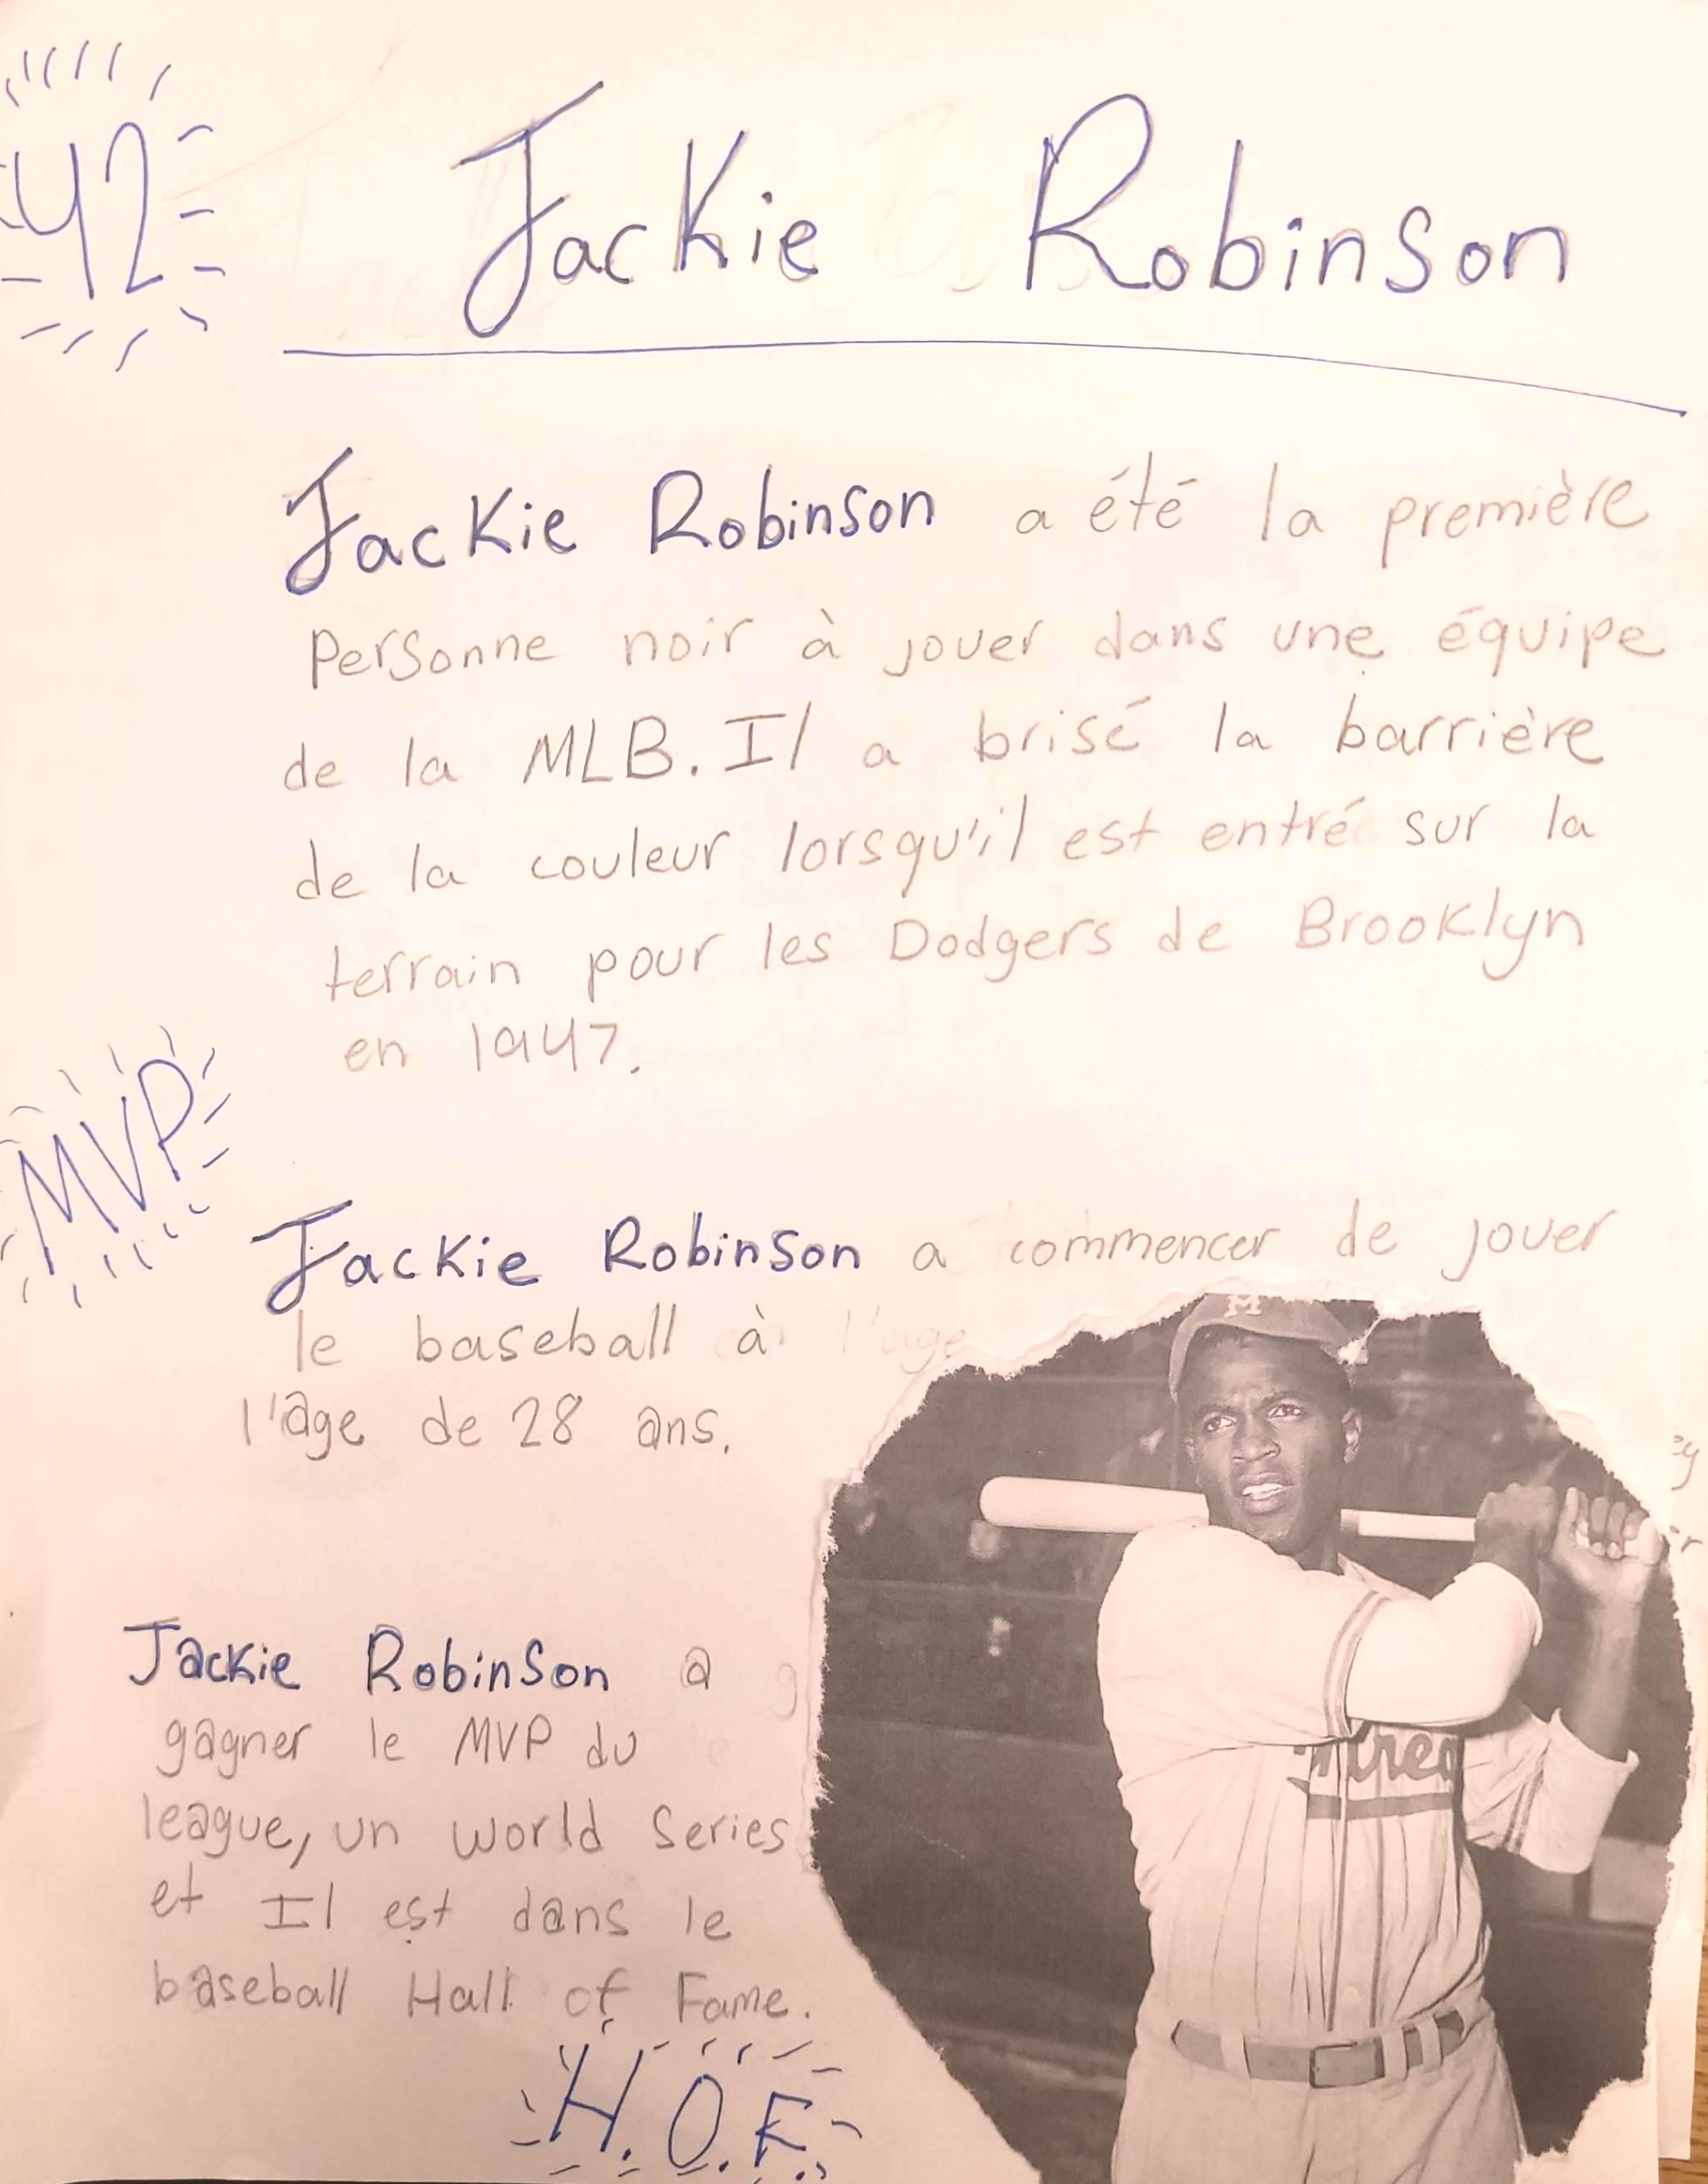 42
Jackie Robinson
Jackie Robinson a été la première
Personne noir à jouer dans une équipe
de la MLB. Il a brisé la barrière
de la couleur lorsqu'il est entré sur la
terrain pour les Dodgers de Brooklyn
en 1947.
MVP
Jackie Robinson a commencer de jouer
le baseball à
l'âge de 28 ans.
Jackie Robinson a
gagner le MVP du
league, un world Series
et Il est dans le
baseball Hall of Fame.
H.O.F.
M